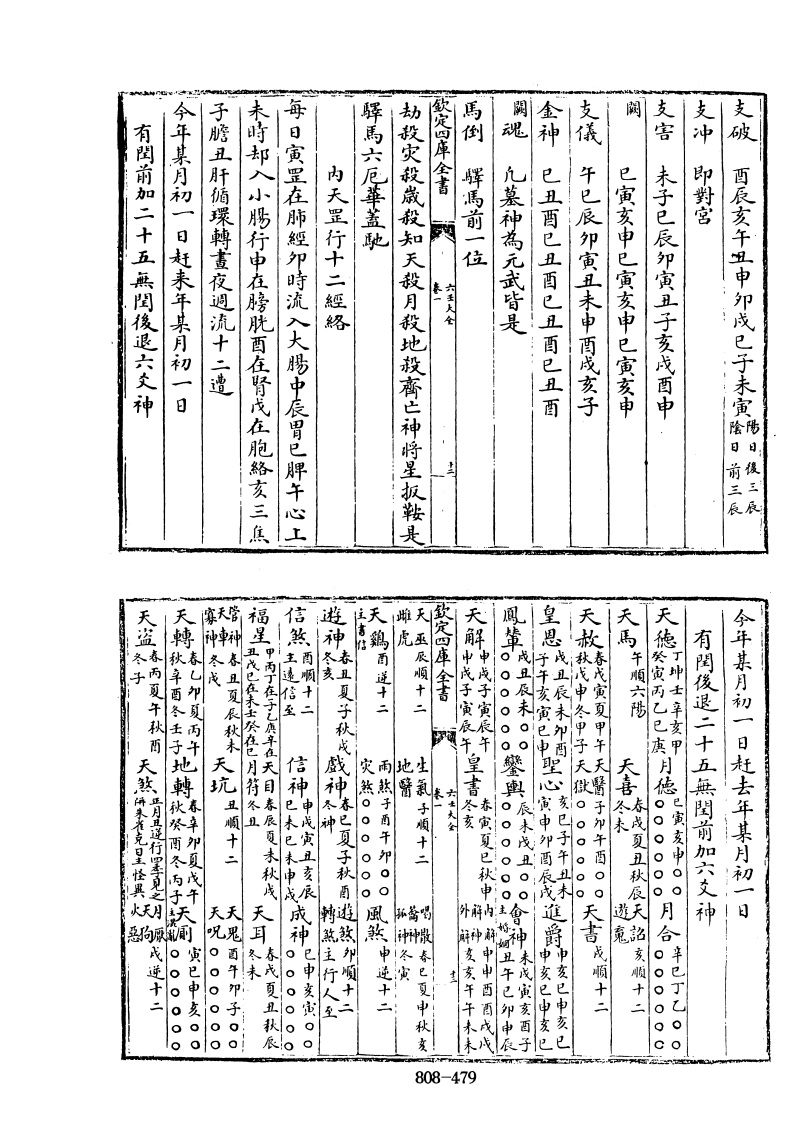 支破　酉辰亥午丑申卯戌巳子未寅陽日後三辰陰日前三辰
支冲　即對宮
支害　未子巳辰卯寅丑子亥戌酉申
闕　巳寅亥申巳寅亥申巳寅亥申
支儀　午巳辰卯寅丑未申酉戌亥子
金神　巳丑酉巳丑酉巳丑酉巳丑酉
闕魂　凡墓神為元武皆是
馬倒　驛馬前一位
欽定四庫全書　六壬大全　卷一　十二
劫殺灾殺歲殺知天殺月殺地殺齊亡神將星扳鞍是
驛馬六厄華蓋馳
內天罡行十二經絡
每日寅罡在肺經卯時流入大腸中辰胃巳脾午心上
未時却入小腸行申在膀胱酉在腎戌在胞絡亥三焦
子膽丑肝循環轉晝夜週流十二遭
今年某月初一日赶来年某月初一日
有閏前加二十五無閏後退六爻神
今年某月初一日赶去年某月初一日
有閏後退二十五無閏前加六爻神
天德丁坤壬辛亥甲癸寅丙乙巳庚　月德巳寅亥申○○○○○○○○　月合辛巳丁乙○○○○○○○○
天馬午順六陽　天喜春戌夏丑秋辰冬未　天詔亥順十二遊魂
天赦春戊寅夏甲午秋戊申冬甲子　天醫子卯午酉○○天獄○○○○○○　天書戌順十二
皇恩戌丑辰未卯酉子午亥寅巳申　聖心亥巳子午丑未寅申卯酉辰戌　進爵申亥巳申亥巳申亥巳申亥巳
鳳輦戌丑辰未○○○○○○○○　鑾輿辰未戌丑○○○○○○○○　會神未戌寅亥酉子主婚姻丑午巳卯申辰
天解申戌子寅辰午申戌子寅辰午　皇書春寅夏巳秋申冬亥　內解神申申酉酉戌戌外解亥亥午午未未
欽定四庫全書　六壬大全　卷一　十三
天巫辰順十二雌虎　生氣子順十二地醫　喝散春巳夏申秋亥孤神冬寅
天鷄酉逆十二主書信　雨煞子酉午卯○○灾煞○○○○○○　風煞申逆十二
遊神春丑夏子秋戌冬亥　戲神春巳夏子秋酉冬神　遊煞卯順十二轉煞主行人至
信煞酉順十二主遠信至　信神申戌寅丑亥辰巳未巳未申戌　成神巳申亥寅○○○○○○○○
福星甲丙丁在子乙庚辛在丑戊巳在未壬癸在巳　天目春辰夏未秋戌月符冬丑　天耳春戌夏丑秋辰冬未
管神天車春丑夏辰秋未寡神冬戌　天坑丑順十二　天鬼酉午卯子○○天呪○○○○○○
天轉春乙卯夏丙午秋辛酉冬壬子　地轉春辛卯夏戊午秋癸酉冬丙子　天廁寅巳申亥○○○○○○○○
天盜春丙夏午秋酉冬子　天煞正月丑逆行四季見之併朱雀克日主怪異　月厭天狗戌逆十二火惡
808-479